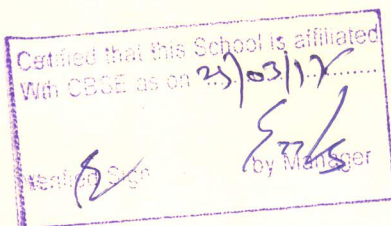 Certified that this School is affiliated
With CBSE as on 25/03/17
Verified Sign by Manager